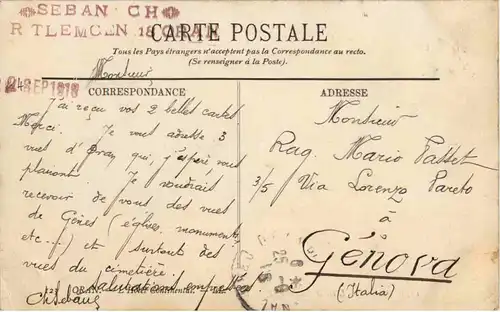 SEBAN CH
R TLEMCEN 18 ORAN
CARTE POSTALE
Tous les Pays étrangers n'acceptent pas la Correspondance au recto.
(Se renseigner à la Poste).
24 SEP 1918
Monsieur
CORRESPONDANCE
J'ai reçu vos 2 belles cartes
Merci. Je vous adresse 3
vues d'Oran qui, j'espère vous
plairont. Je voudrais
recevoir de vous des vues
de Gênes (églises, monuments,
etc...) et surtout des
vues du cimetière.
salutations empressées
ORAN. — L'Hôtel Continental. — LL.
ADRESSE
Monsieur
Rag. Mario
3/5 Via Lorenzo Pareto
à
Génova
(Italia)